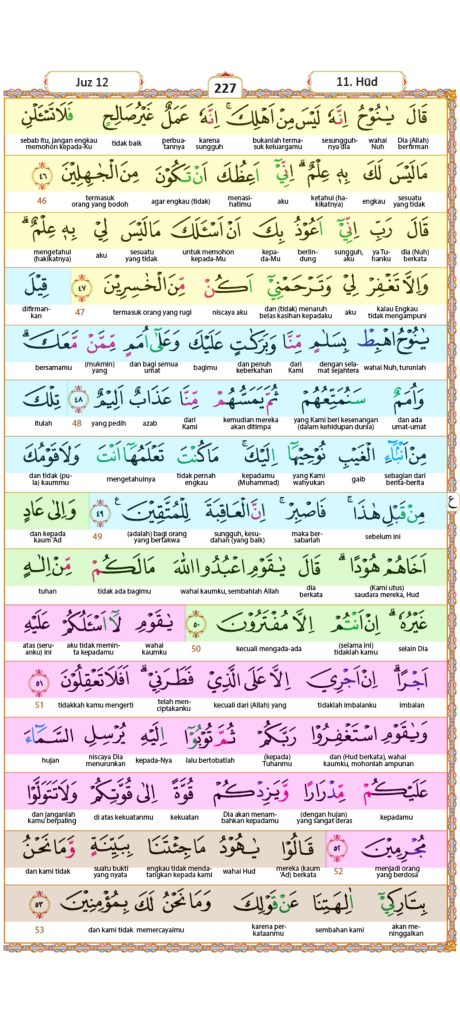 Juz 12
227
11. Hud
قَالَ يٰنُوْحُ اِنَّهٗ لَيْسَ مِنْ اَهْلِكَ ۚاِنَّهٗ عَمَلٌ غَيْرُ صَالِحٍ فَلَا تَسْـَٔلْنِ
Dia (Allah) berfirman wahai Nuh sesungguhnya dia bukanlah termasuk keluargamu karena sungguh perbuatannya tidak baik sebab itu, jangan engkau memohon kepada-Ku
مَا لَيْسَ لَكَ بِهٖ عِلْمٌ ۗاِنِّيْٓ اَعِظُكَ اَنْ تَكُوْنَ مِنَ الْجٰهِلِيْنَ ٤٦
sesuatu yang tidak engkau ketahui (hakikatnya) aku menasihatimu agar engkau (tidak) termasuk orang yang bodoh 46
قَالَ رَبِّ اِنِّيْٓ اَعُوْذُ بِكَ اَنْ اَسْـَٔلَكَ مَا لَيْسَ لِيْ بِهٖ عِلْمٌ ۗ
dia (Nuh) berkata ya Tuhanku sungguh, aku berlindung kepada-Mu untuk memohon kepada-Mu sesuatu yang tidak aku mengetahui (hakikatnya)
وَاِلَّا تَغْفِرْ لِيْ وَتَرْحَمْنِيْٓ اَكُنْ مِّنَ الْخٰسِرِيْنَ ٤٧ قِيْلَ
kalau Engkau tidak mengampuni aku dan (tidak) menaruh belas kasihan kepadaku niscaya aku termasuk orang yang rugi 47 difirmankan
يٰنُوْحُ اهْبِطْ بِسَلٰمٍ مِّنَّا وَبَرَكٰتٍ عَلَيْكَ وَعَلٰٓى اُمَمٍ مِّمَّنْ مَّعَكَ ۗ
wahai Nuh, turunlah dengan selamat sejahtera dari Kami dan penuh keberkahan bagimu dan bagi semua umat (mukmin) yang bersamamu
وَاُمَمٌ سَنُمَتِّعُهُمْ ثُمَّ يَمَسُّهُمْ مِّنَّا عَذَابٌ اَلِيْمٌ ٤٨ تِلْكَ
dan ada umat-umat yang Kami beri kesenangan (dalam kehidupan dunia) kemudian mereka akan ditimpa dari Kami azab yang pedih 48 itulah
مِنْ اَنْۢبَاۤءِ الْغَيْبِ نُوْحِيْهَآ اِلَيْكَ ۚمَا كُنْتَ تَعْلَمُهَآ اَنْتَ وَلَا قَوْمُكَ
sebagian dari berita-berita gaib yang Kami wahyukan kepadamu (Muhammad) tidak pernah engkau mengetahuinya dan tidak (pula) kaummu
مِنْ قَبْلِ هٰذَا ۛفَاصْبِرْ ۛاِنَّ الْعَاقِبَةَ لِلْمُتَّقِيْنَ ࣖ ٤٩ وَاِلٰى عَادٍ
sebelum ini maka bersabarlah sungguh, kesudahan (yang baik) (adalah) bagi orang yang bertakwa 49 dan kepada kaum 'Ad
ع
اَخَاهُمْ هُوْدًا ۗقَالَ يٰقَوْمِ اعْبُدُوا اللّٰهَ مَا لَكُمْ مِّنْ اِلٰهٍ
(Kami utus) saudara mereka, Hud dia berkata wahai kaumku, sembahlah Allah tidak ada bagimu tuhan
غَيْرُهٗ ۗاِنْ اَنْتُمْ اِلَّا مُفْتَرُوْنَ ٥٠ يٰقَوْمِ لَآ اَسْـَٔلُكُمْ عَلَيْهِ
selain Dia (selama ini) tidaklah kamu kecuali mengada-ada 50 wahai kaumku aku tidak meminta kepadamu atas (seruanku) ini
اَجْرًا ۗاِنْ اَجْرِيَ اِلَّا عَلَى الَّذِيْ فَطَرَنِيْ ۗاَفَلَا تَعْقِلُوْنَ ٥١
imbalan tidaklah imbalanku kecuali dari (Allah) yang telah menciptakanku tidakkah kamu mengerti 51
وَيٰقَوْمِ اسْتَغْفِرُوْا رَبَّكُمْ ثُمَّ تُوْبُوْٓا اِلَيْهِ يُرْسِلِ السَّمَاۤءَ
dan (Hud berkata), wahai kaumku, mohonlah ampunan (kepada) Tuhanmu lalu bertobatlah kepada-Nya niscaya Dia menurunkan hujan
عَلَيْكُمْ مِّدْرَارًا وَّيَزِدْكُمْ قُوَّةً اِلٰى قُوَّتِكُمْ وَلَا تَتَوَلَّوْا
kepadamu (dengan hujan) yang sangat deras Dia akan menambahkan kepadamu kekuatan di atas kekuatanmu dan janganlah kamu berpaling
مُجْرِمِيْنَ ٥٢ قَالُوْا يٰهُوْدُ مَا جِئْتَنَا بِبَيِّنَةٍ وَّمَا نَحْنُ
menjadi orang yang berdosa 52 mereka (kaum 'Ad) berkata wahai Hud engkau tidak mendatangkan kepada kami suatu bukti yang nyata dan kami tidak
بِتَارِكِيْٓ اٰلِهَتِنَا عَنْ قَوْلِكَ وَمَا نَحْنُ لَكَ بِمُؤْمِنِيْنَ ٥٣
akan meninggalkan sembahan kami karena perkataanmu dan kami tidak memercayaimu 53